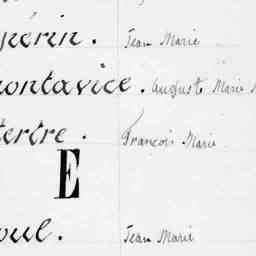 périn. Jean Marie
ontavice. Auguste Marie
tertre. François Marie
E
oul. Jean Marie